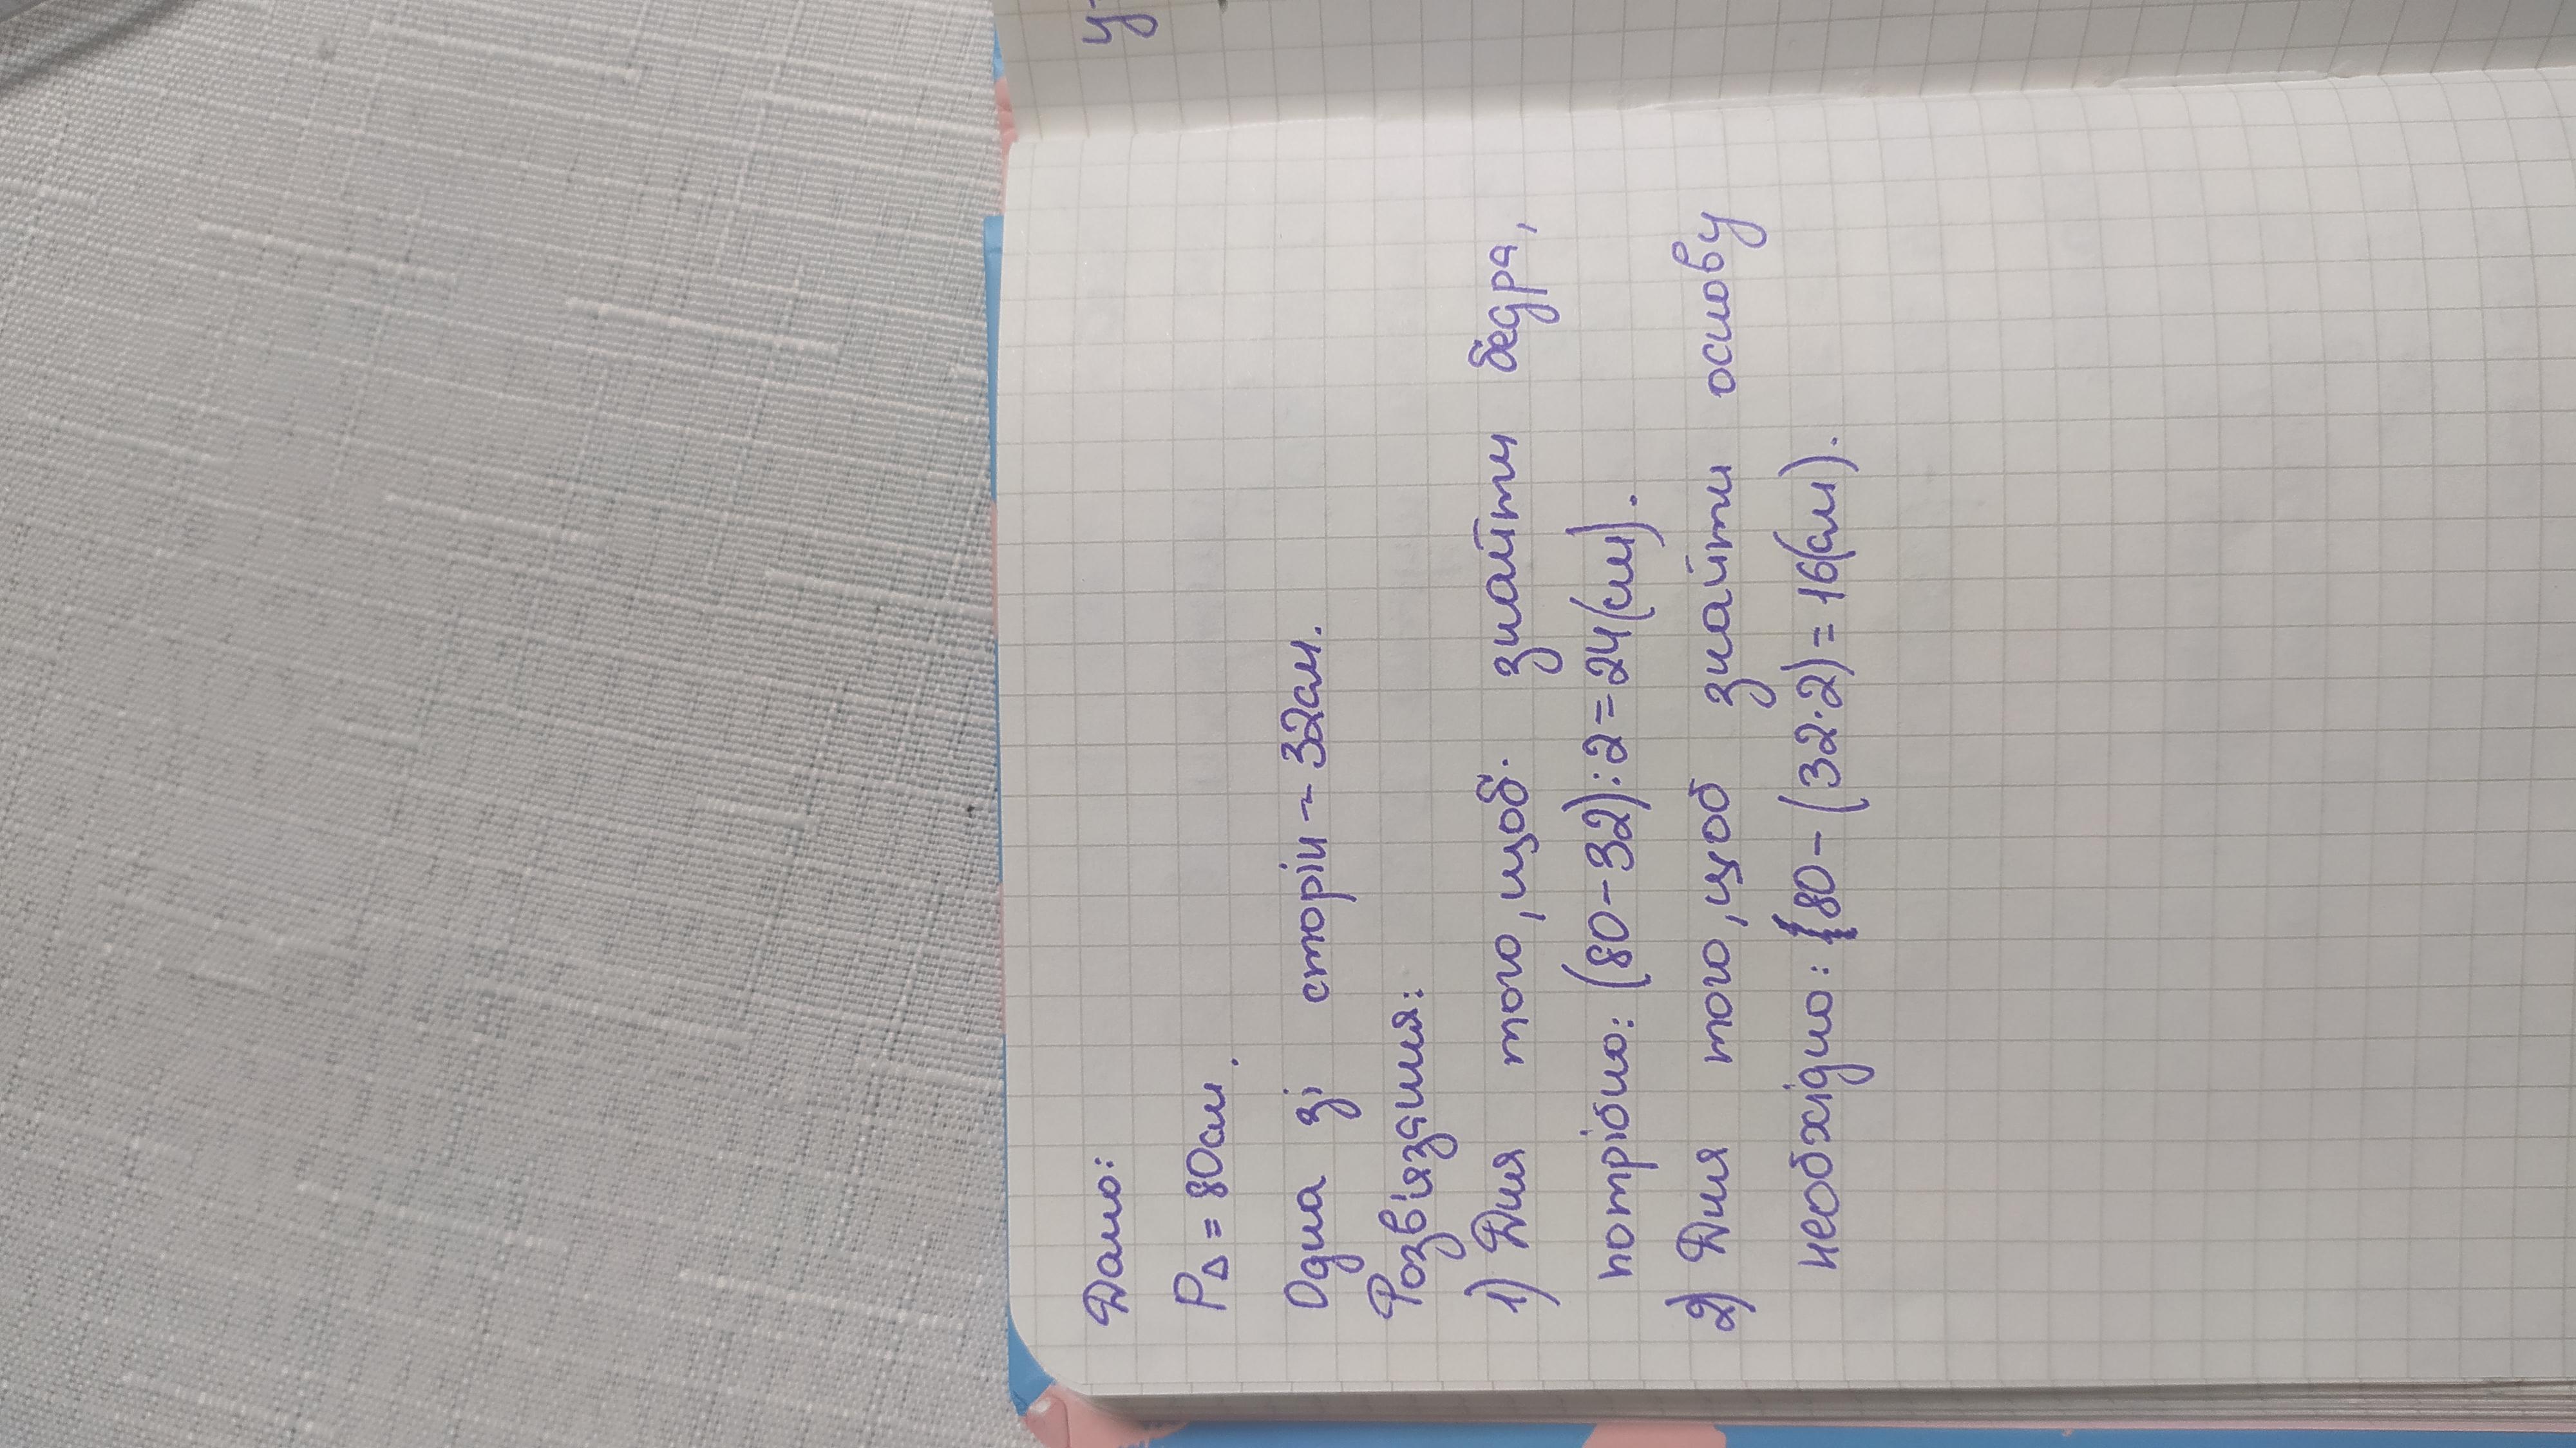 Дано:
P△ = 80см.
Одна зі сторін - 32см.
Розв'язання:
1) Для того, щоб. знайти бедра,
потрібно: (80-32):2=24(см).
2) Для того, щоб знайти основу
необхідно: 80-(32·2)=16(см).